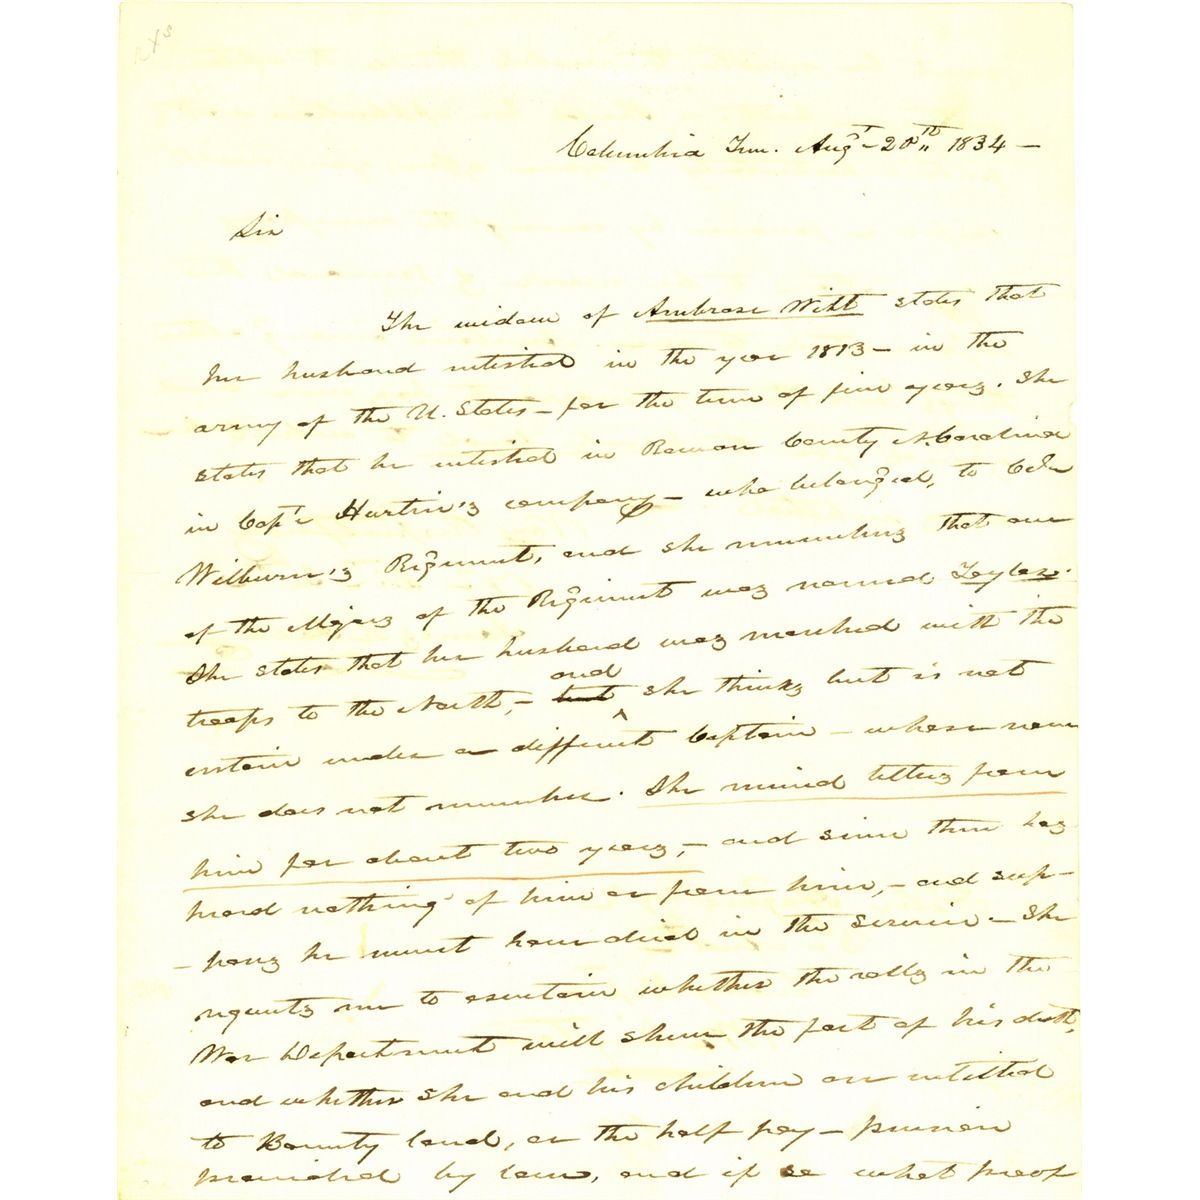 Columbia Ten. Augt 28th 1834 —
Sir
The widow of Ambrose Witt states that
her husband inlisted in the year 1813 — in the
army of the U. States — for the term of five years. She
states that he inlisted in Rowan County N. Carolina
in Capt. company — who belonged, to Col.
Wilburn's Regiment, and she remembers that one
of the Majors of the Regiment was named Taylor.
She states that her husband was marched with the
troops to the North, — and she thinks but is not
certain under a different Captain — whose name
she does not remember. She received letters from
him for about two years, — and since then has
heard nothing of him or from him, — and sup-
-poses he must have died in the service — She
requests me to ascertain whether the rolls in the
War Department will shew the fact of his death,
and whether she and his children are intitled
to Bounty land, or the half pay — pension
provided by law, and if so what proof